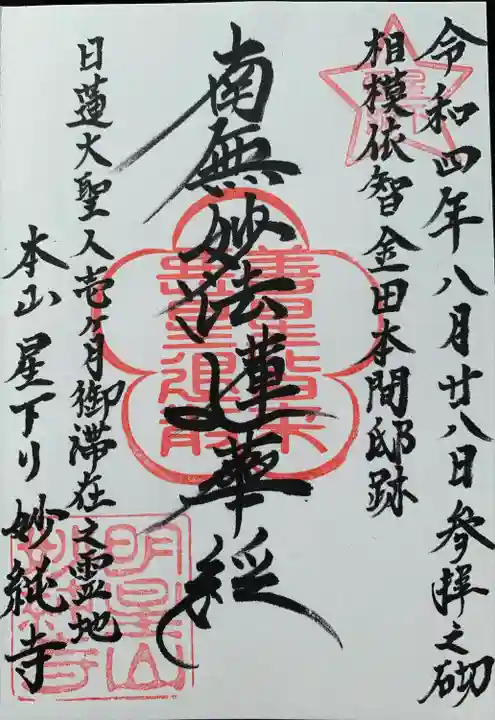 令和四年八月廿八日参拝之砌
相模依智金田本間邸跡
南無妙法蓮華経
日蓮大聖人壱ヶ月御滞在之霊地
本山星下り妙純寺
善星皆来
悪星退散
明星山
妙純寺